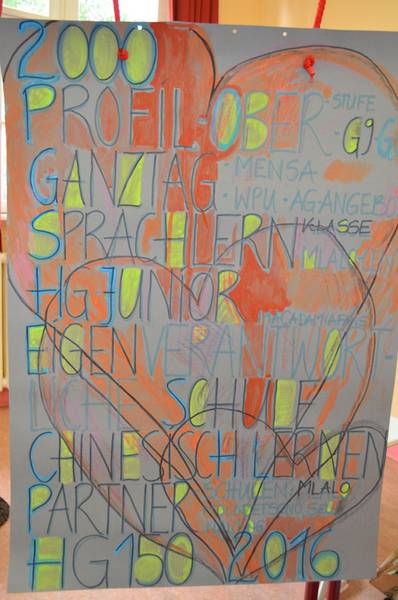 2000
PROFIL·OBER·STUFE
·G9·G
GANZTAG·MENSA
·WPU·AGANGEBO
SPRACHLERNKLASSE
HG JUNIOR
EIGENVERANTWORT-
LICHE SCHULE
CHINESISCH LERNEN
PARTNER SCHULEN: MLALO
HG 150 2016